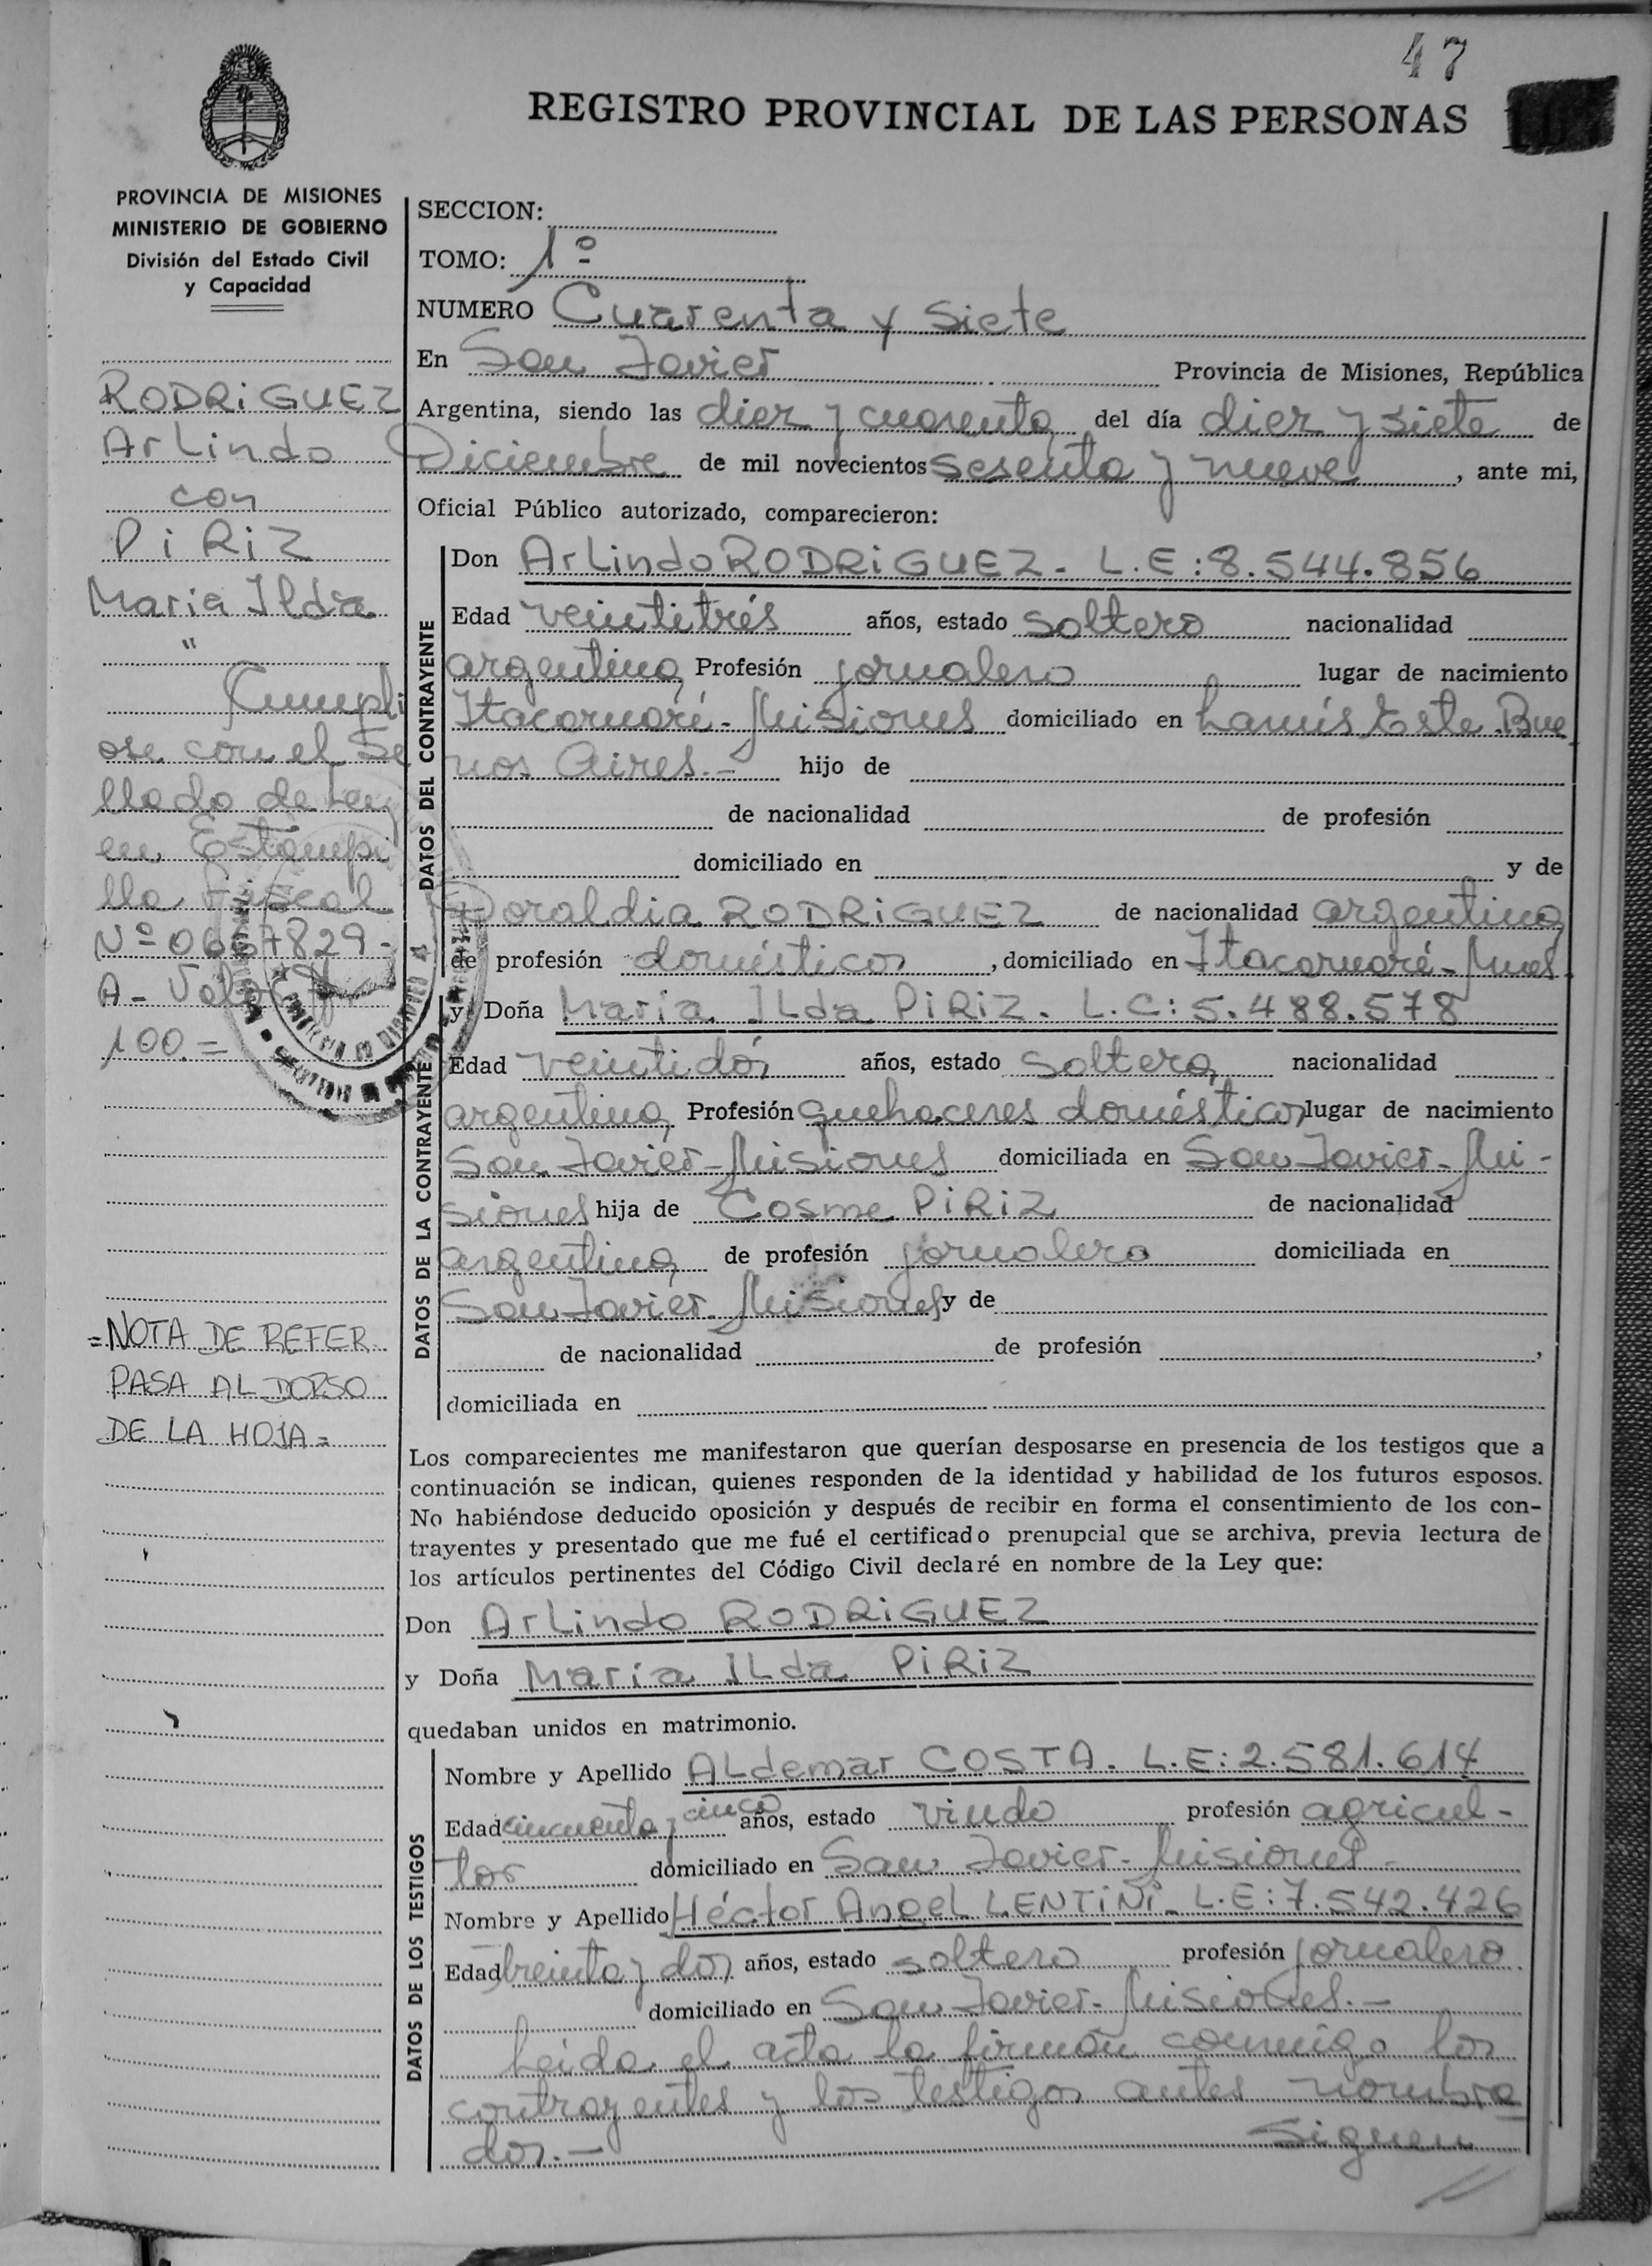 47
REGISTRO PROVINCIAL DE LAS PERSONAS
PROVINCIA DE MISIONES
MINISTERIO DE GOBIERNO
División del Estado Civil
y Capacidad
RODRiGUEZ
ArLindo
con
PiRiZ
Maria Ilda
"
Cumpli
ose con el Se
llado de Ley
en Estampi
lla Fiscal
Nº 0667829-
A - Valor
100.=
=NOTA DE REFER.
PASA AL DORSO
DE LA HOJA=
SECCION:
TOMO: 1º
NUMERO Cuarenta y Siete
En San Javier Provincia de Misiones, República
Argentina, siendo las diez y cuarenta del día diez y siete de
Diciembre de mil novecientos sesenta y nueve, ante mi,
Oficial Público autorizado, comparecieron:
DATOS DEL CONTRAYENTE
Don ArLindo RODRiGUEZ. L.E: 8.544.856
Edad veintitrés años, estado soltero nacionalidad
argentina Profesión jornalero lugar de nacimiento
Itacaruaré - Misiones domiciliado en Lanús Este. Bue
nos Aires.- hijo de
de nacionalidad de profesión
domiciliado en y de
Doraldia RODRiGUEZ de nacionalidad argentina
de profesión domésticos, domiciliado en Itacaruaré - Mnes
DATOS DE LA CONTRAYENTE
y Doña Maria ILda PiRiZ. L.C: 5.488.578
Edad veintidós años, estado soltera nacionalidad
argentina Profesión quehaceres domésticos lugar de nacimiento
San Javier - Misiones domiciliada en San Javier - Mi-
siones hija de Cosme PiRiZ de nacionalidad
argentina de profesión jornalero domiciliada en
San Javier - Misiones y de
de nacionalidad de profesión ,
domiciliada en
Los comparecientes me manifestaron que querían desposarse en presencia de los testigos que a
continuación se indican, quienes responden de la identidad y habilidad de los futuros esposos.
No habiéndose deducido oposición y después de recibir en forma el consentimiento de los con-
trayentes y presentado que me fué el certificado prenupcial que se archiva, previa lectura de
los artículos pertinentes del Código Civil declaré en nombre de la Ley que:
Don ArLindo RODRiGUEZ
y Doña Maria ILda PiRiZ
quedaban unidos en matrimonio.
DATOS DE LOS TESTIGOS
Nombre y Apellido ALdemar COSTA. L.E: 2.581.614
Edad cincuenta y cinco años, estado viudo profesión agricul-
tor domiciliado en San Javier - Misiones -
Nombre y Apellido Héctor AngeL LENTiNi. L.E: 7.542.426
Edad treinta y dos años, estado soltero profesión jornalero
domiciliado en San Javier - Misiones.-
Leida el acta la firman conmigo los
contrayentes y los testigos antes nombra
dos.- Siguen